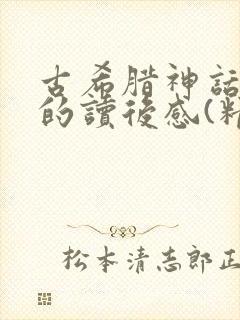 古希腊神話
的讀後感(精
松本清志郎正